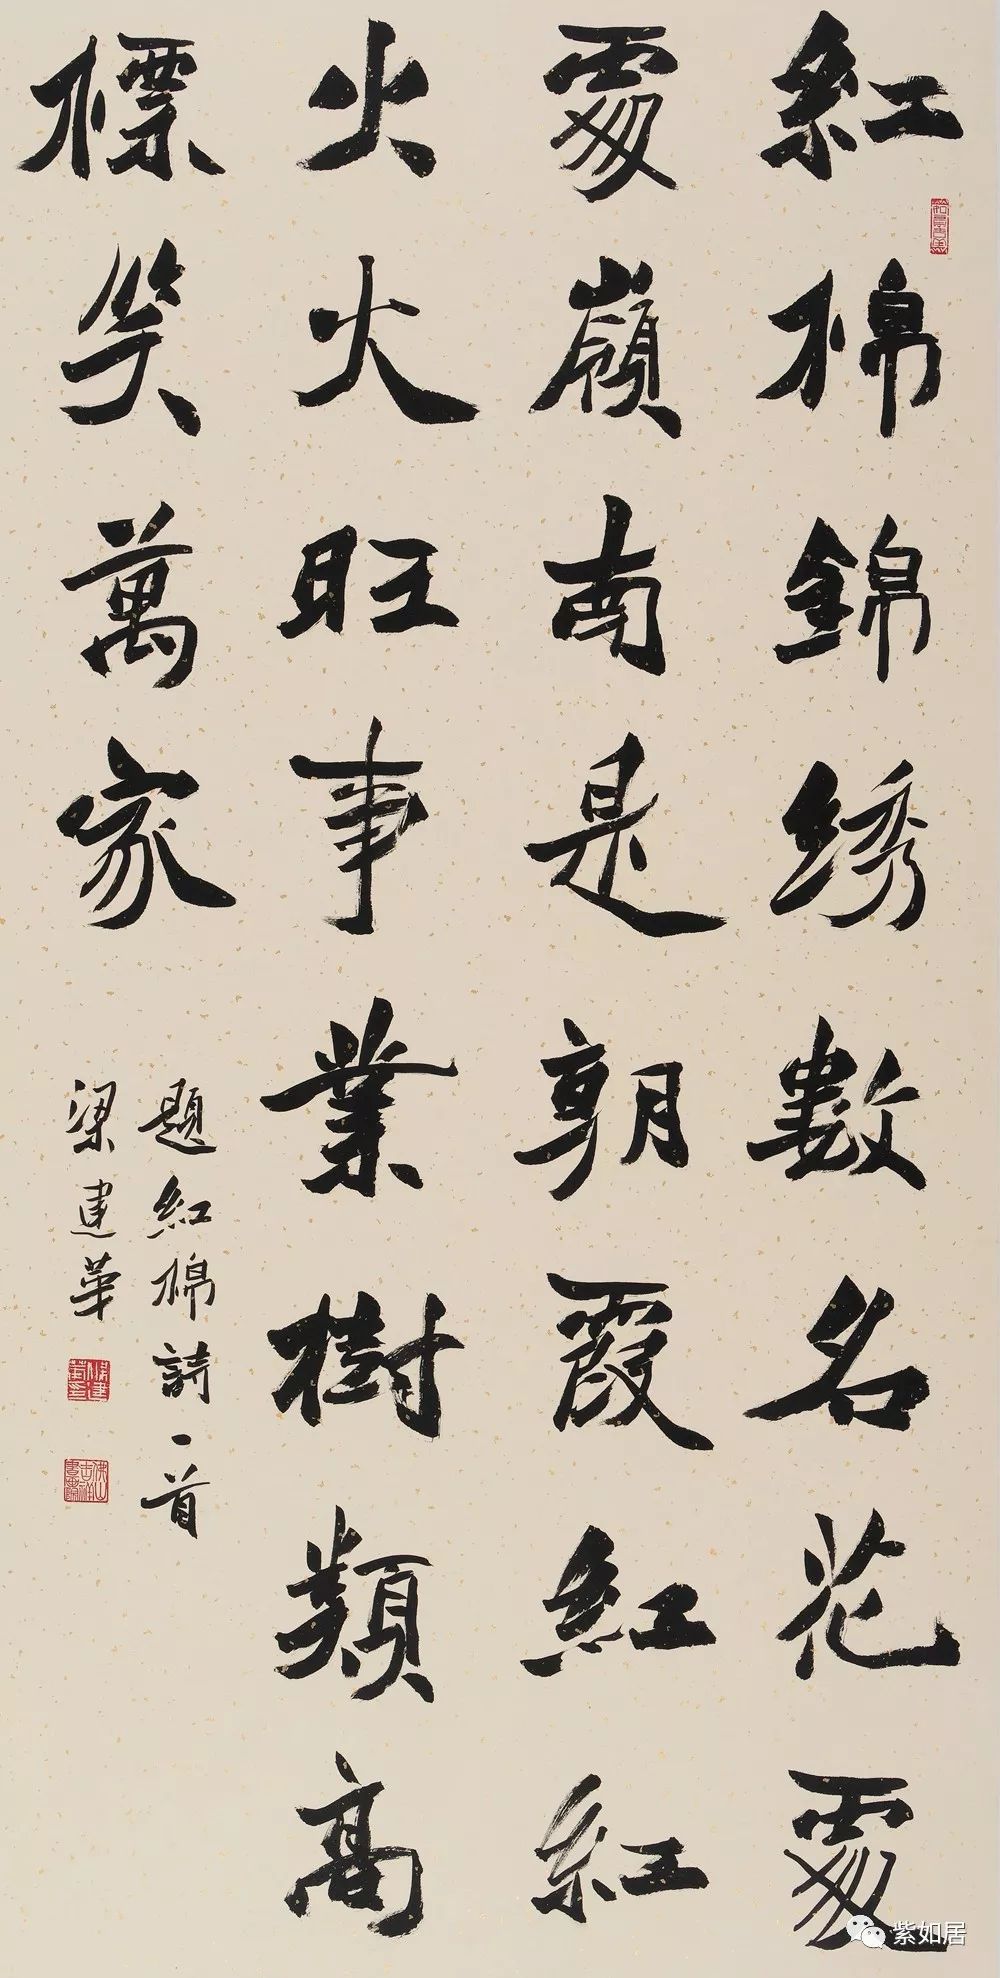 紅棉錦绣數名花處
處嶺南是朝霞紅紅
火火旺事業樹類高
標笑萬家
題紅棉詩一首
梁建華
紫如居